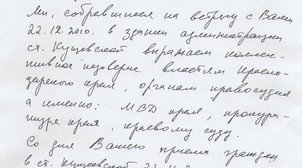 Мы, собравшиеся на встречу с Вами
22.12.2010. в здании администрации
ст. Кущевской выражаем коллек-
тивное недоверие властям Красно-
дарского края, органам правосудия
а именно: МВД края, прокура-
туре края, краевому суду.
Со дня Вашего приема граждан
в ст. Кущевской